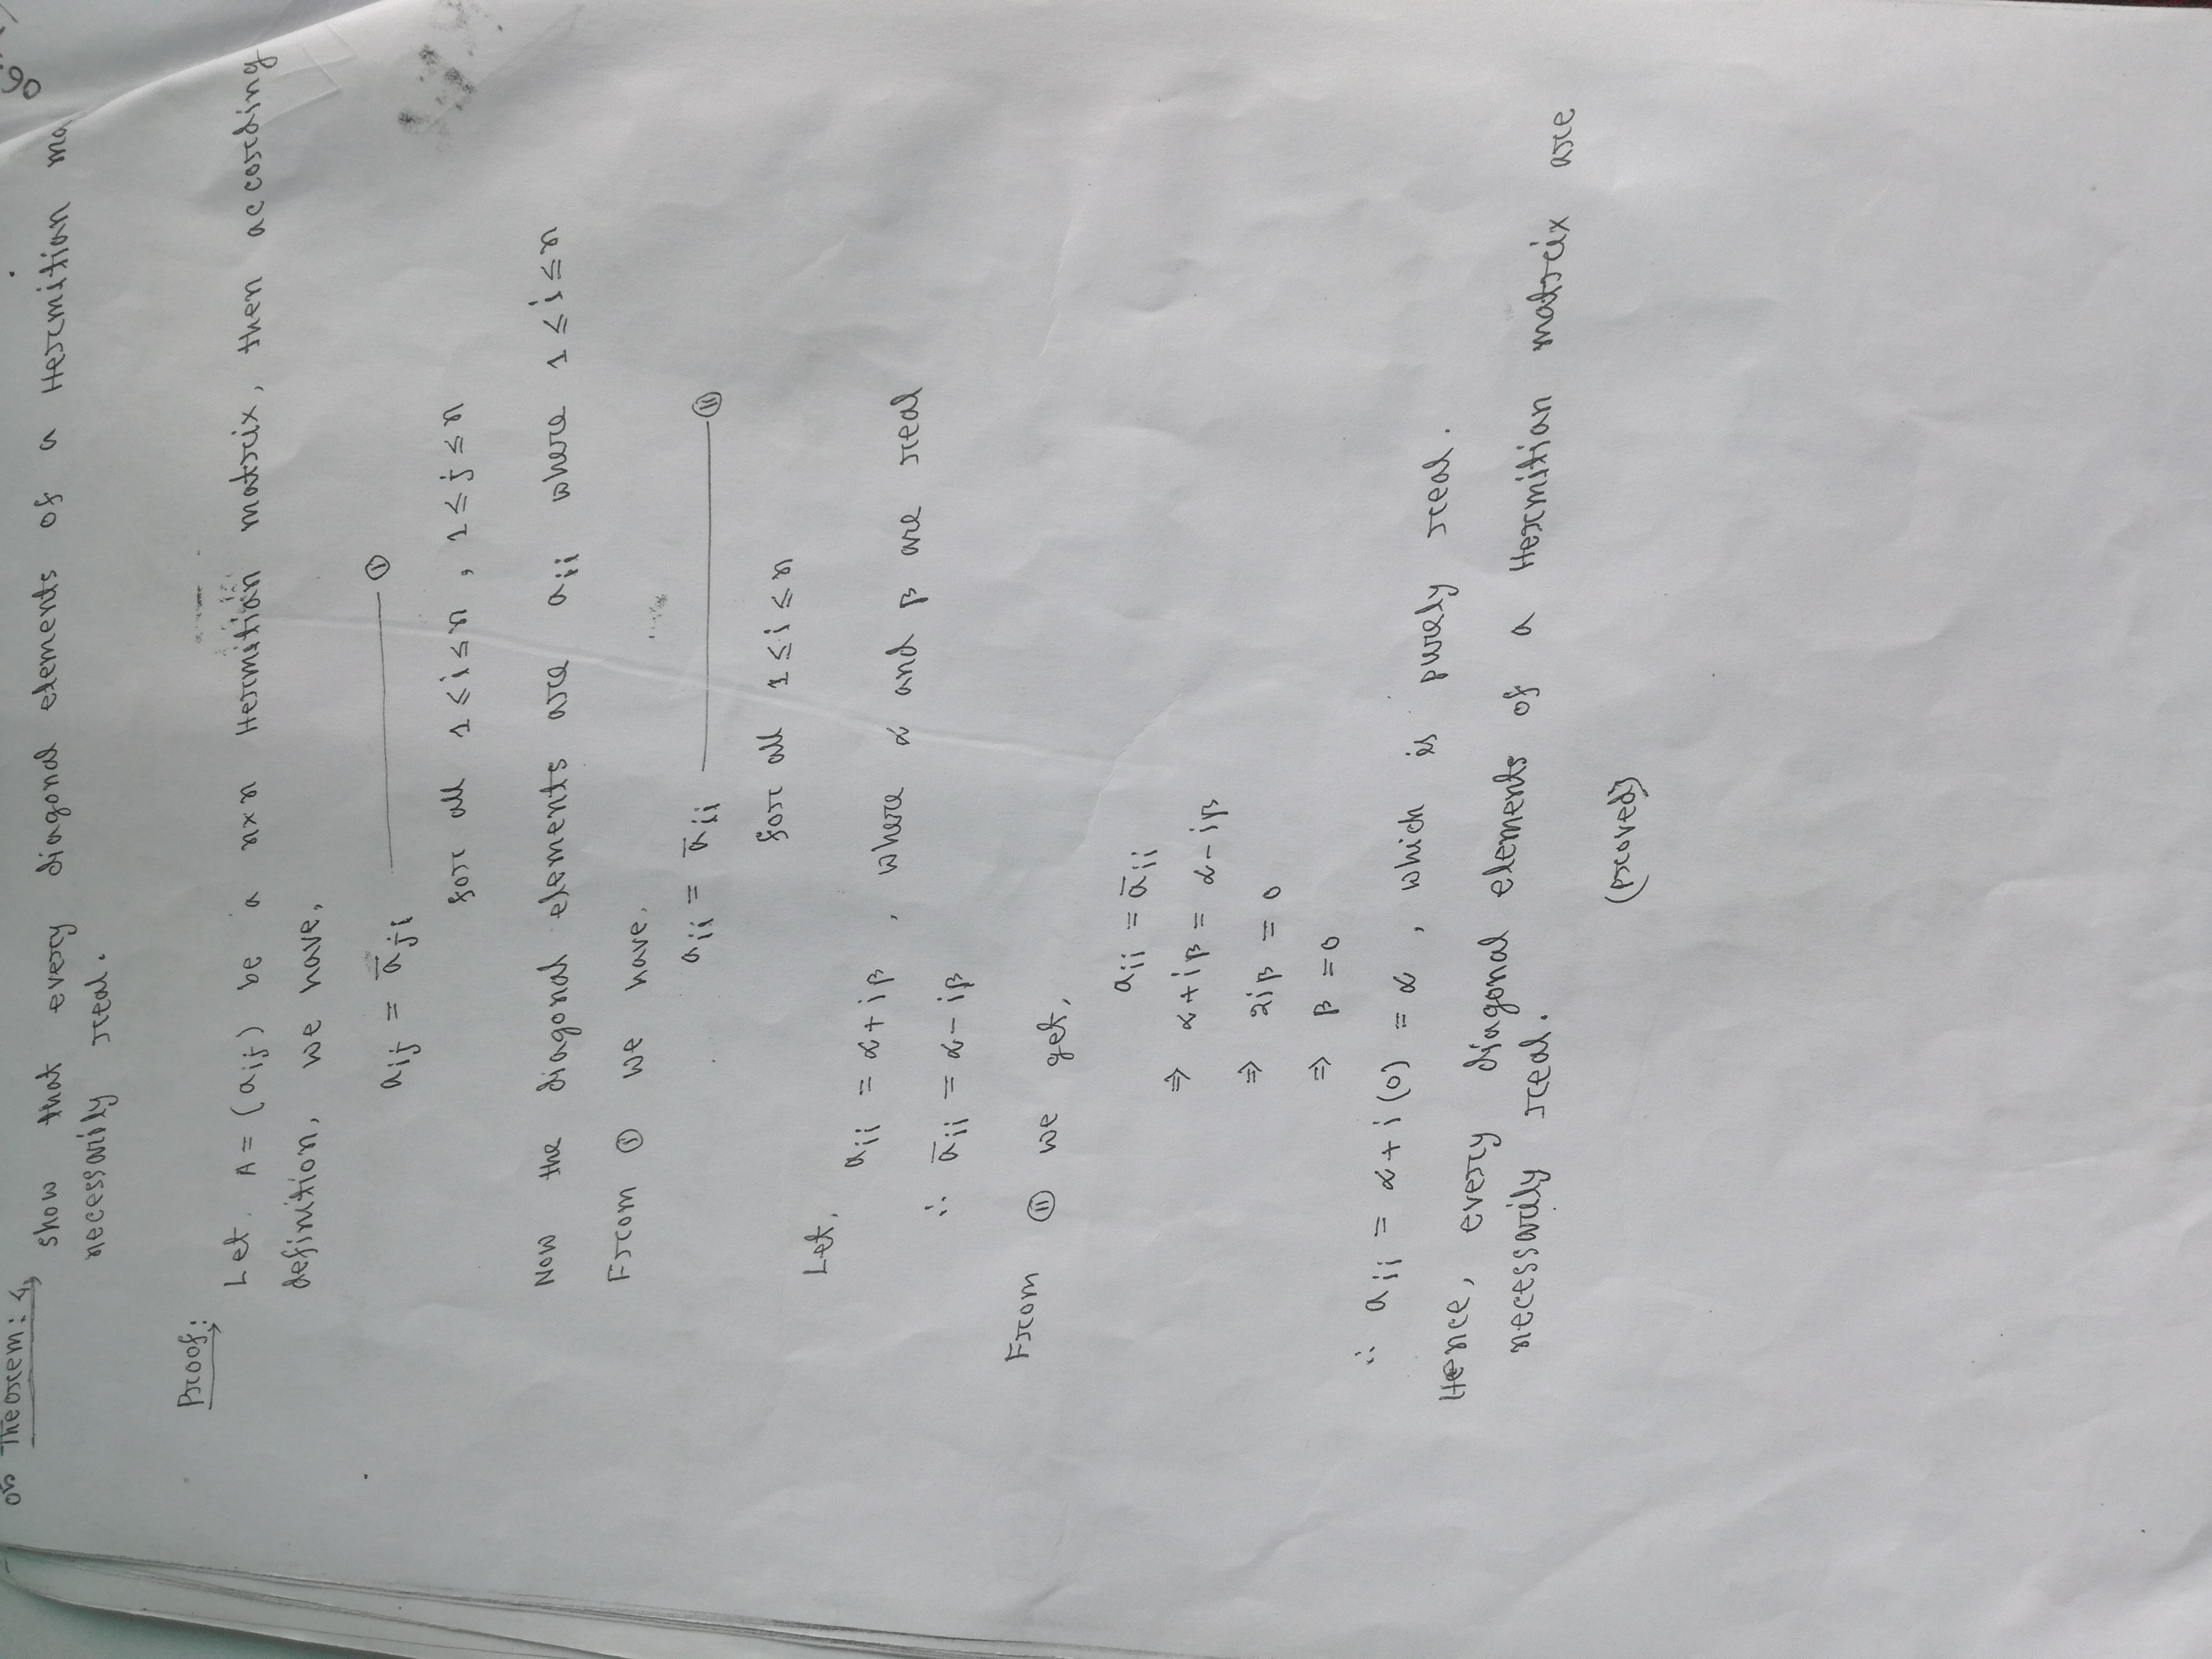 Theorem: 4
show that every diagonal elements of a Hermitian ma
necessarily real.
Proof:
Let. A = (aᵢⱼ) be a n×n Hermitian matrix, then according
definition, we have,
aᵢⱼ = āⱼᵢ ——— (i)
for all 1 ≤ i ≤ n , 1 ≤ j ≤ n
Now the diagonal elements are aᵢᵢ where 1 ≤ i ≤ n
From (i) we have.
aᵢᵢ = āᵢᵢ ——— (ii)
for all 1 ≤ i ≤ n
Let,
aᵢᵢ = α + iβ , where α and β are real
∴ āᵢᵢ = α - iβ
From (ii) we get,
aᵢᵢ = āᵢᵢ
⇒ α + iβ = α - iβ
⇒ 2iβ = 0
⇒ β = 0
∴ aᵢᵢ = α + i(0) = α , which is purely real.
Hence, every diagonal elements of a Hermitian matrix are
necessarily real.
(proved)